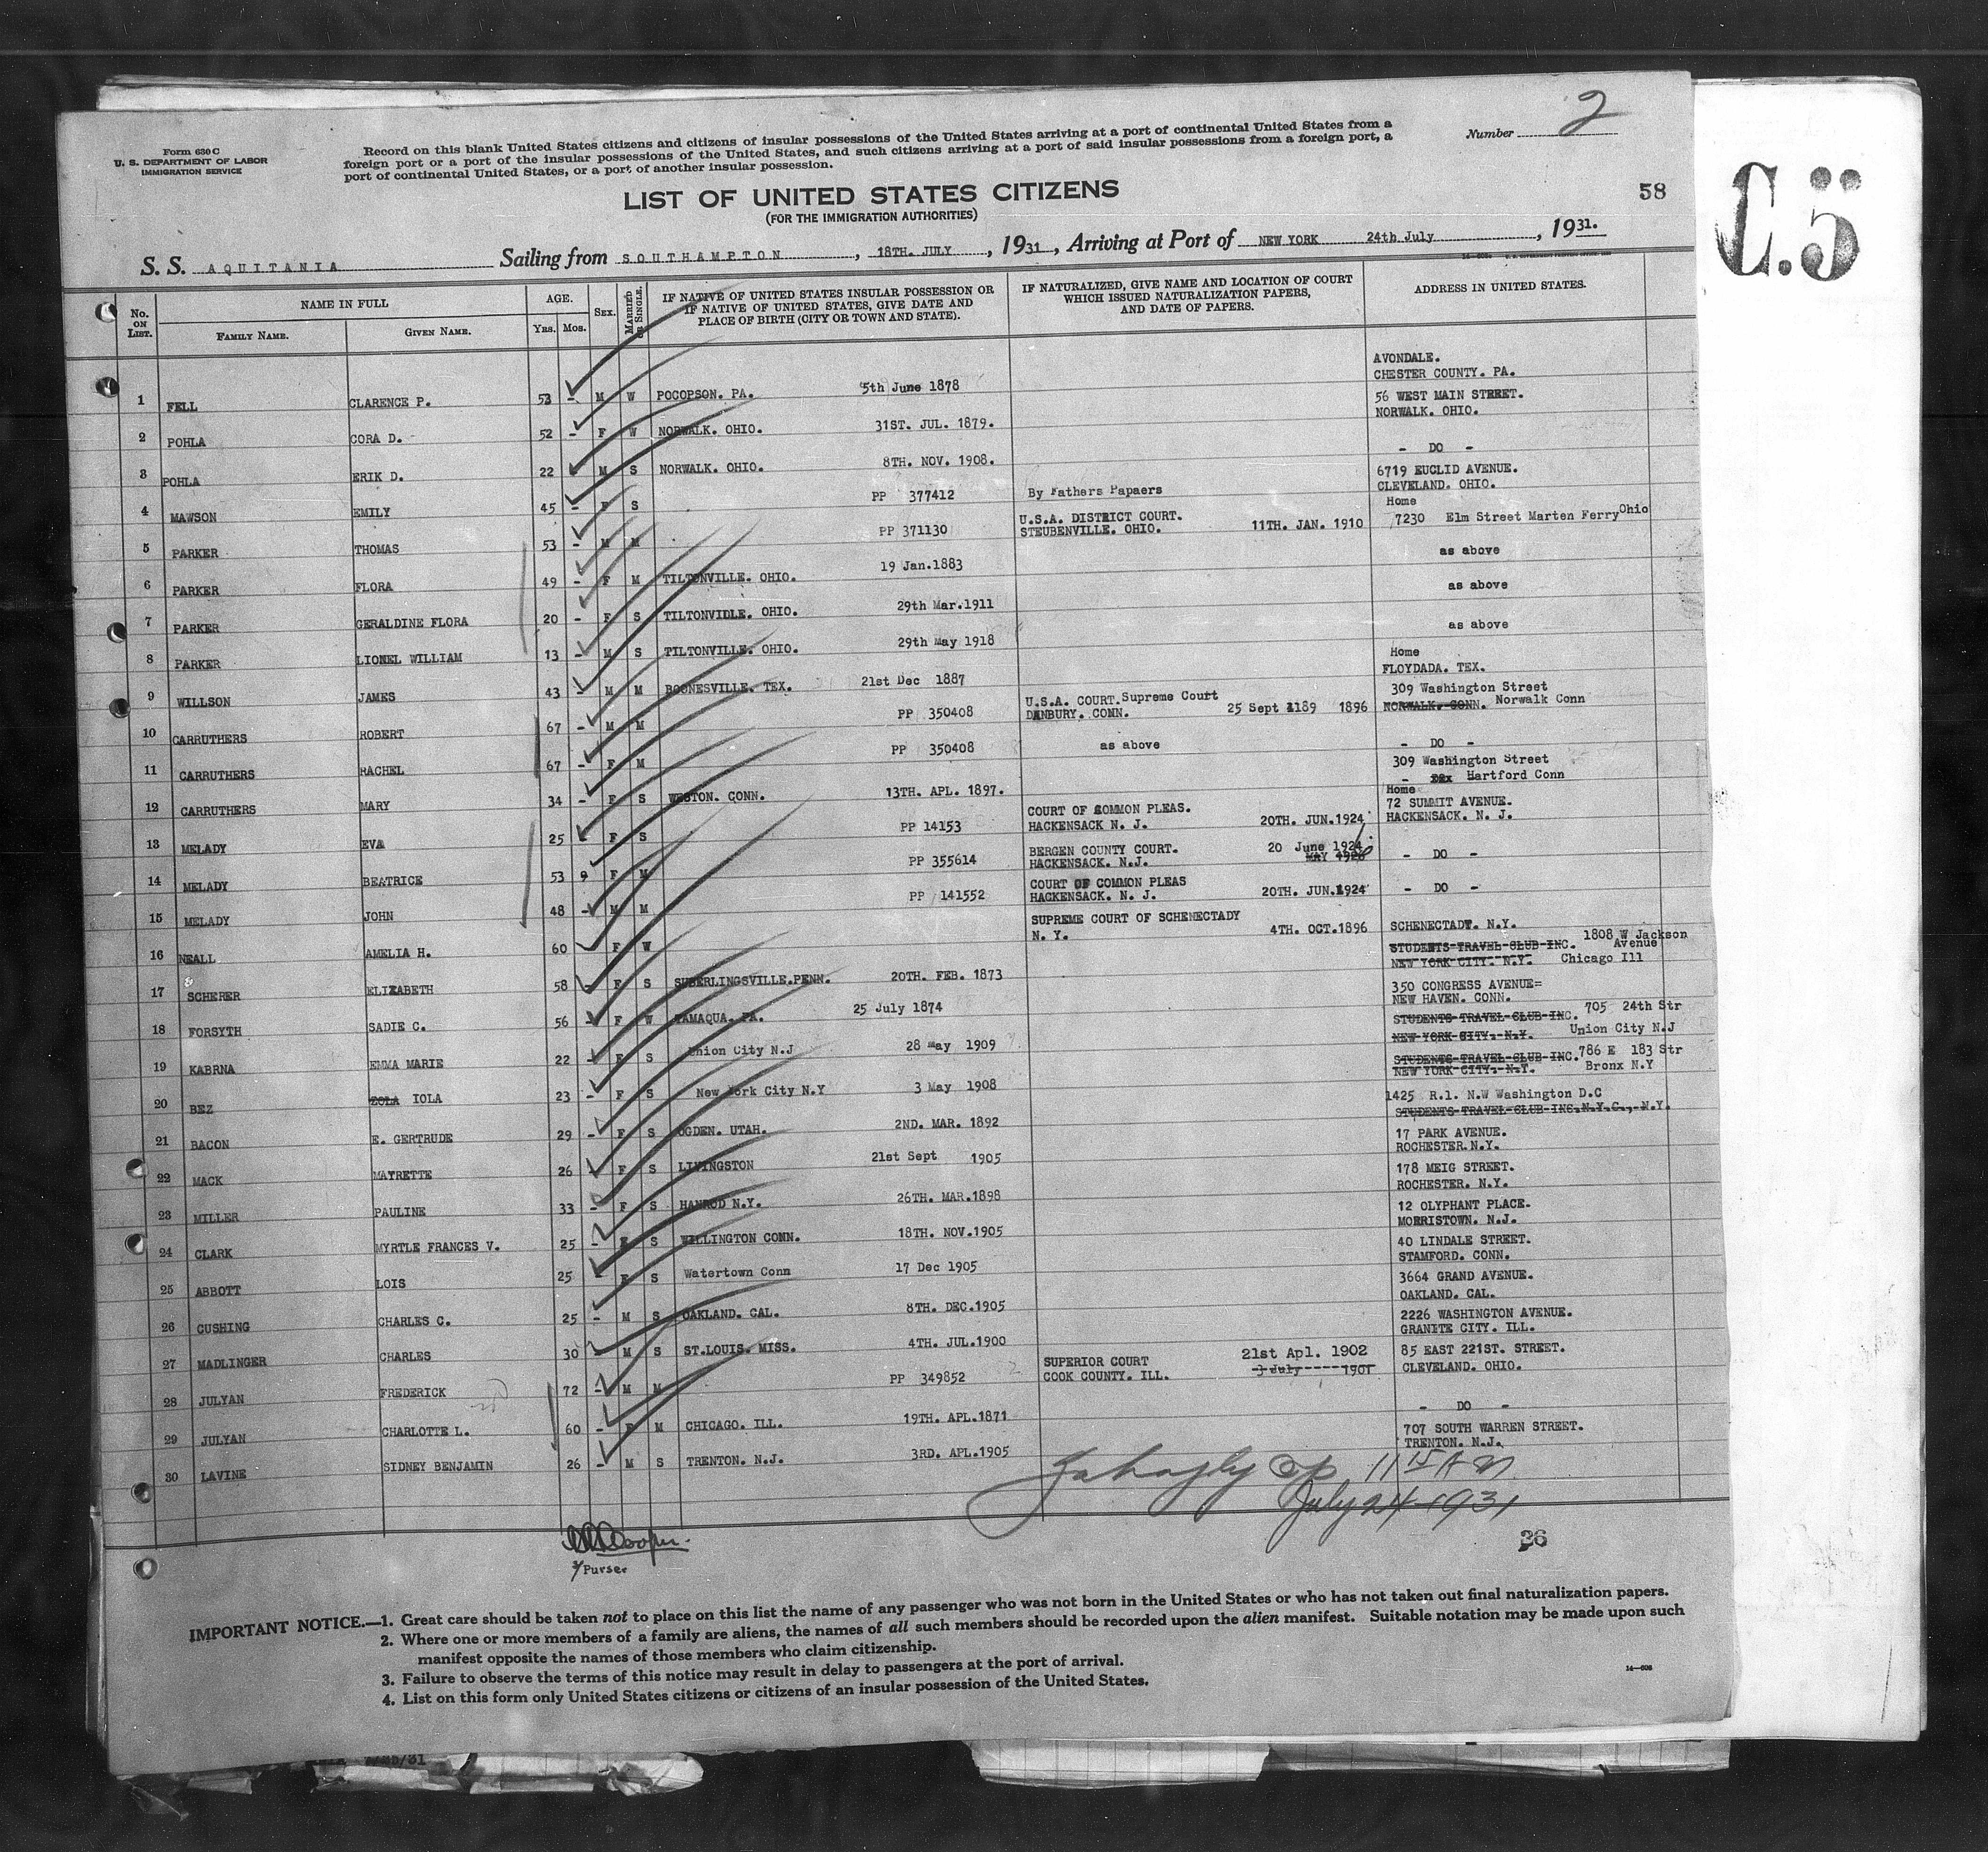 2
Form 630 C
U. S. DEPARTMENT OF LABOR
IMMIGRATION SERVICE
Record on this blank United States citizens and citizens of insular possessions of the United States arriving at a port of continental United States from a
foreign port or a port of the insular possessions of the United States, and such citizens arriving at a port of said insular possessions from a foreign port, a
port of continental United States, or a port of another insular possession.
Number
LIST OF UNITED STATES CITIZENS
(FOR THE IMMIGRATION AUTHORITIES)
58
C.5
S. S. AQUITANIA Sailing from SOUTHAMPTON, 18TH. JULY, 1931, Arriving at Port of NEW YORK 24th July, 1931.
No. ON LIST. NAME IN FULL FAMILY NAME. GIVEN NAME. AGE. Yrs. Mos. SEX. MARRIED OR SINGLE. IF NATIVE OF UNITED STATES INSULAR POSSESSION OR IF NATIVE OF UNITED STATES, GIVE DATE AND PLACE OF BIRTH (CITY OR TOWN AND STATE). IF NATURALIZED, GIVE NAME AND LOCATION OF COURT WHICH ISSUED NATURALIZATION PAPERS, AND DATE OF PAPERS. ADDRESS IN UNITED STATES.
1 FELL CLARENCE P. 53 - M W POCOPSON. PA. 5th June 1878 AVONDALE. CHESTER COUNTY. PA.
2 POHLA CORA D. 52 - F W NORWALK. OHIO. 31ST. JUL. 1879. 56 WEST MAIN STREET. NORWALK. OHIO.
3 POHLA ERIK D. 22 - M S NORWALK. OHIO. 8TH. NOV. 1908. - DO -
4 MAWSON EMILY 45 - F S PP 377412 By Fathers Papaers 6719 EUCLID AVENUE. CLEVELAND. OHIO.
5 PARKER THOMAS 53 - M M PP 371130 U.S.A. DISTRICT COURT. STEUBENVILLE. OHIO. 11TH. JAN. 1910 Home 7230 Elm Street Marten Ferry Ohio
6 PARKER FLORA 49 - F M TILTONVILLE. OHIO. 19 Jan.1883 as above
7 PARKER GERALDINE FLORA 20 - F S TILTONVIDLE. OHIO. 29th Mar.1911 as above
8 PARKER LIONEL WILLIAM 13 - M S TILTONVILLE. OHIO. 29th May 1918 as above
9 WILLSON JAMES 43 - M M BOONESVILLE. TEX. 21st Dec 1887 Home FLOYDADA. TEX.
10 CARRUTHERS ROBERT 67 - M M PP 350408 U.S.A. COURT. Supreme Court DANBURY. CONN. 25 Sept 1189 1896 309 Washington Street NORWALK. CONN. Norwalk Conn
11 CARRUTHERS RACHEL 67 - F M PP 350408 as above - DO -
12 CARRUTHERS MARY 34 - F S WESTON. CONN. 13TH. APL. 1897. 309 Washington Street - Hartford Conn
13 MELADY EVA 25 F S PP 14153 COURT OF COMMON PLEAS. HACKENSACK N. J. 20TH. JUN.1924 Home 72 SUMMIT AVENUE. HACKENSACK. N. J.
14 MELADY BEATRICE 53 9 F M PP 355614 BERGEN COUNTY COURT. HACKENSACK. N.J. 20 June 1924 MAY 1926 - DO -
15 MELADY JOHN 48 - M M PP 141552 COURT OF COMMON PLEAS HACKENSACK. N. J. 20TH. JUN.1924 - DO -
16 NEALL AMELIA H. 60 F W SUPREME COURT OF SCHENECTADY N. Y. 4TH. OCT.1896 SCHENECTADY. N.Y.
17 SCHERER ELIZABETH 58 - F S SUBERLINGSVILLE.PENN. 20TH. FEB. 1873 STUDENTS TRAVEL CLUB INC. NEW YORK CITY. N.Y. 1808 W Jackson Avenue Chicago Ill
18 FORSYTH SADIE C. 56 - F W TAMAQUA. PA. 25 July 1874 350 CONGRESS AVENUE= NEW HAVEN. CONN.
19 KABRNA EMMA MARIE 22 - F S Union City N.J 28 may 1909 STUDENTS TRAVEL CLUB INC. NEW YORK CITY. N.Y. 705 24th Str Union City N.J
20 BEZ ZOLA IOLA 23 - F S New York City N.Y 3 May 1908 STUDENTS TRAVEL CLUB INC. NEW YORK CITY. N.Y. 786 E 183 Str Bronx N.Y
21 BACON E. GERTRUDE 29 - F S OGDEN. UTAH. 2ND. MAR. 1892 1425 R.l. N.W Washington D.C STUDENTS TRAVEL CLUB INC.N.Y.C., N.Y.
22 MACK MAYRETTE 26 F S LIVINGSTON 21st Sept 1905 17 PARK AVENUE. ROCHESTER.N.Y.
23 MILLER PAULINE 33 - F S HAMROD N.Y. 26TH. MAR.1898 178 MEIG STREET. ROCHESTER. N.Y.
24 CLARK MYRTLE FRANCES V. 25 - F S WILLINGTON CONN. 18TH. NOV.1905 12 OLYPHANT PLACE. MORRISTOWN. N.J.
25 ABBOTT LOIS 25 - F S Watertown Conn 17 Dec 1905 40 LINDALE STREET. STAMFORD. CONN.
26 CUSHING CHARLES C. 25 - M S OAKLAND. CAL. 8TH. DEC.1905 3664 GRAND AVENUE. OAKLAND. CAL.
27 MADLINGER CHARLES 30 - M S ST.LOUIS. MISS. 4TH. JUL.1900 2226 WASHINGTON AVENUE. GRANITE CITY. ILL.
28 JULYAN FREDERICK 72 - M M PP 349852 SUPERIOR COURT COOK COUNTY. ILL. 21st Apl. 1902 3 July 1901 85 EAST 221ST. STREET. CLEVELAND. OHIO.
29 JULYAN CHARLOTTE L. 60 - F M CHICAGO. ILL. 19TH. APL.1871 - DO -
30 LAVINE SIDNEY BENJAMIN 26 - M S TRENTON. N.J. 3RD. APL.1905 707 SOUTH WARREN STREET. TRENTON. N.J.
11 15 AM
July 24 1931
Cooper.
Purser
36
IMPORTANT NOTICE.—1. Great care should be taken not to place on this list the name of any passenger who was not born in the United States or who has not taken out final naturalization papers.
2. Where one or more members of a family are aliens, the names of all such members should be recorded upon the alien manifest. Suitable notation may be made upon such
manifest opposite the names of those members who claim citizenship.
3. Failure to observe the terms of this notice may result in delay to passengers at the port of arrival.
4. List on this form only United States citizens or citizens of an insular possession of the United States.
14—606